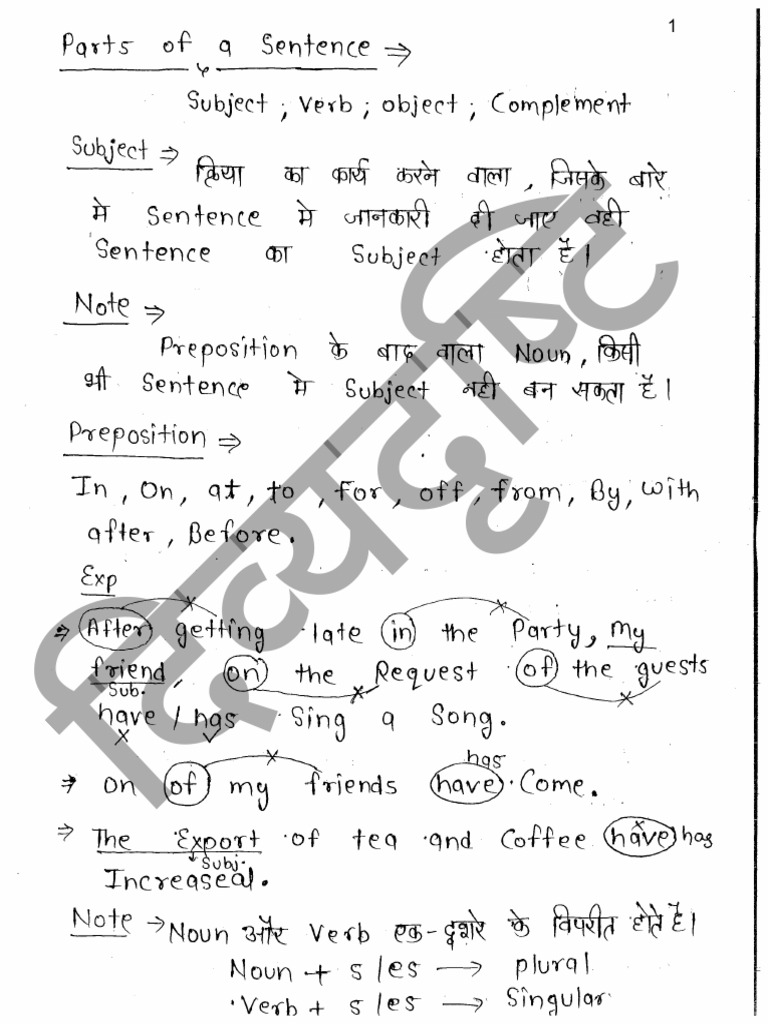 1
Parts of a Sentence ⇒
Subject ; Verb ; object ; Complement
Subject ⇒ क्रिया का कार्य करने वाला , जिसके बारे
मे Sentence मे जानकारी दी जाए वही
Sentence का Subject होता है।
Note ⇒
Preposition के बाद वाला Noun, किसी
भी Sentence मे Subject नही बन सकता है।
Preposition ⇒
In, On, at, to, For, off, from, By, with
after, Before.
Exp
⇒ After getting late in the Party, my
friend, on the Request of the guests
Sub.
have / has Sing a Song.
has
⇒ On of my friends have Come.
⇒ The Export of tea and Coffee have has
Subj.
Increaseal.
Note → Noun और Verb एक-दूशरे के विपरीत होते है।
Noun + s/es → plural
Verb + s/es → Singular
दिव्यदृष्टि